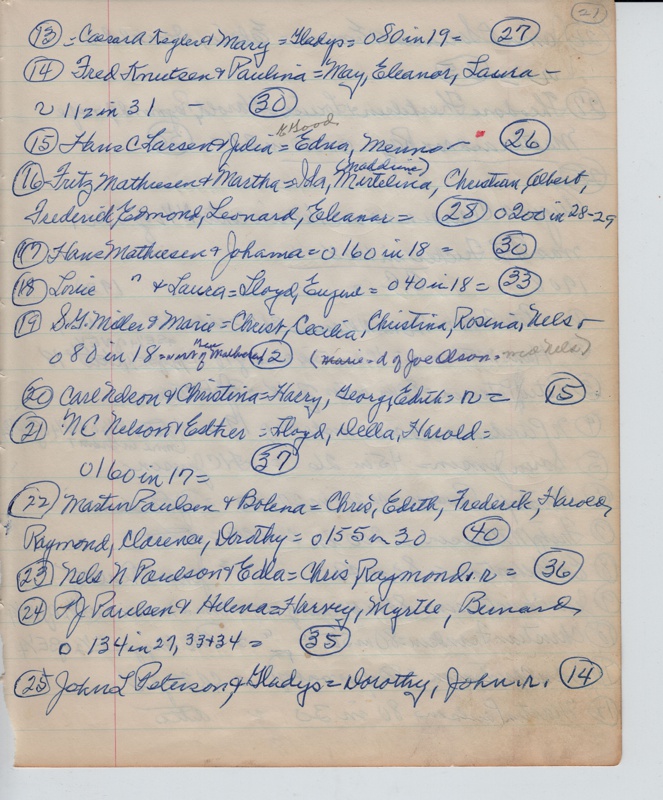 21
(13) = Caesar A Kegler & Mary = Gladys = 080 in 19 = (27)
(14) Fred Knutsen & Paulina = May, Eleanor, Laura -
r 112 in 31 - (30)
Good
(15) Hans C Larsen & Julia = Edna, Menno - (26)
(16) Fritz Mathiesen & Martha = Ida, Mirtelina, (Maddine) Christian, Albert,
Frederick Edmond, Leonard, Eleanor = (28) 0200 in 28-29
(17) Hans Mathiesen & Johanna = 0160 in 18 = (30)
(18) Louie " & Laura = Lloyd, Eugene = 040 in 18 = (33)
(19) S.G. Miller & Marie = Christ, Cecilia, Christina, Rosena, Nels -
080 in 18 = (12) (Marie = d of Joe Olson =
(20) Carl Nelson & Christina = Harry, Georg, Edith = r = (15)
(21) NC Nelson & Esther = Floyd, Della, Harold =
0160 in 17 = (37)
(22) Martin Paulsen & Bolena = Chris, Edith, Frederik, Harold,
Raymond, Clarence, Dorothy = 0155 in 30 (40)
(23) Nels N Paulson & Edla = Chris, Raymond. r = (36)
(24) PJ Paulsen & Helena = Harvey, Myrtle, Bernard,
0 134 in 27, 33 & 34 = (35)
(25) John L Peterson & Gladys = Dorothy, John. r. (14)